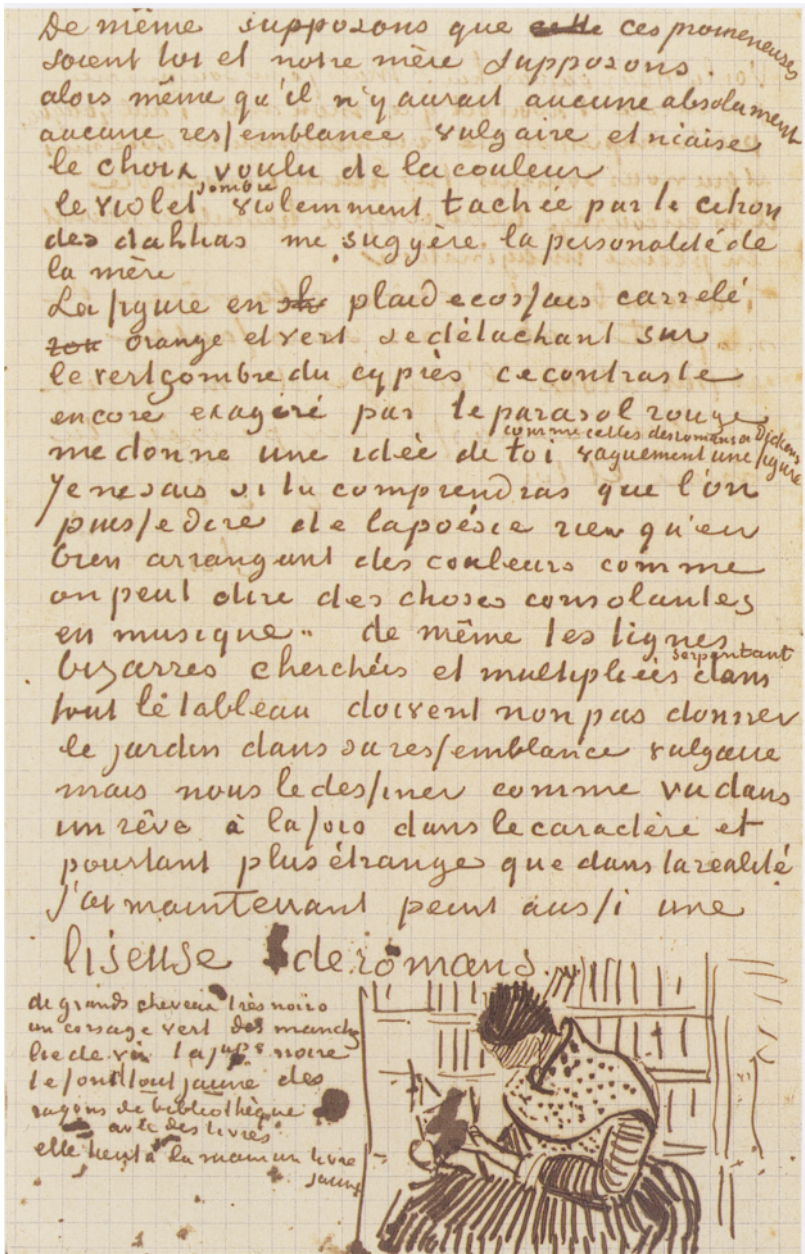 De même supposons que cette ces promeneuses
soient toi et notre mère supposons.
alors même qu'il n'y aurait aucune absolument
aucune ressemblance vulgaire et niaise
le choix voulu de la couleur
le violet sombre violemment tachée par le citron
des dahlias me suggère la personalité de
la mère
La figure en plaid ecossais carrelé
orange et vert se détachant sur
le vert sombre du cyprès ce contraste
encore exagéré par le parasol rouge
me donne une idée de toi vaguement une figure
comme celles des romans de Dickens
Je ne sais si tu comprendras que l'on
puisse dire de la poésie rien qu'en
bien arrangeant des couleurs comme
on peut dire des choses consolantes
en musique. de même les lignes
bizarres cherchées et multipliées serpentant dans
tout le tableau doivent non pas donner
le jardin dans sa ressemblance vulgaire
mais nous le dessiner comme vu dans
un rêve à la fois dans le caractère et
pourtant plus étrange que dans la realité
J'ai maintenant peint aussi une
liseuse de romans.
de grands cheveux très noirs
un corsage vert des manches
lie de vin la jupe noire
le fond tout jaune des
rayons de bibliothèque
avec des livres
elle tient à la main un livre
jaune